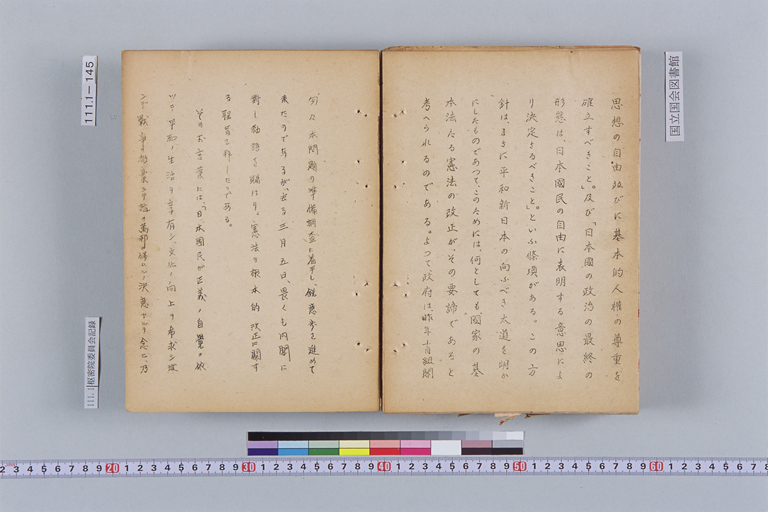 思想の自由並びに基本的人権の尊重を
確立すべきこと」。及び「日本國の政治の最終の
形態は、日本國民の自由に表明する意思によ
り決定さるべきこと」。といふ條項がある。この方
針は、まさに平和新日本の向ふべき大道を明か
にしたものであつて、このためには、何としても、國家の基
本法たる憲法の改正が、その要諦であると
考へられるのである。よつて政府は昨年十月組閣
以来本問題の準備調査に着手し、鋭意歩を進めて
来たのであるが、去る三月五日、畏くも内閣に
對し勅語を賜はり、憲法の根本的改正に關す
る
その お言葉には、「日本國民が正義ノ自覺ニ依
リテ平和ノ生活ヲ享有シ、文化ノ向上ヲ希求シ進
ンデ戰争ヲ抛棄シテ誼ヲ萬邦ニ修ムルノ決意ナルヲ念ヒ、乃
111.1-145
国立国会図書館
111.1 枢密院委員会記録
2 3 4 5 6 7 8 9 20 1 2 3 4 5 6 7 8 9 30 1 2 3 4 5 6 7 8 9 40 1 2 3 4 5 6 7 8 9 50 1 2 3 4 5 6 7 8 9 60 1 2 3 4 5 6 7